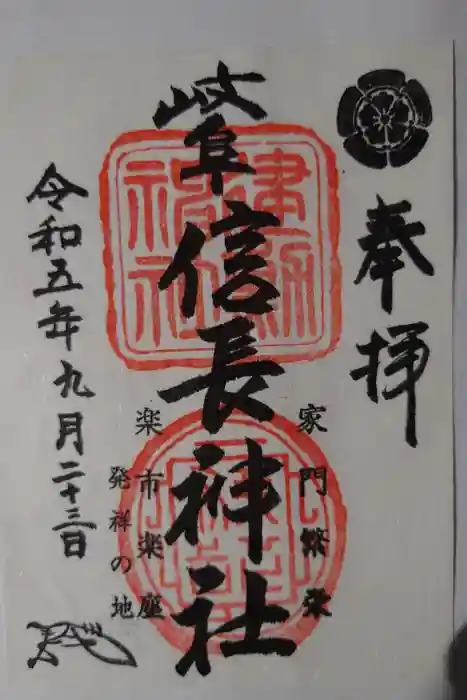 奉拝
家門繁栄
岐阜信長神社
楽市楽座
発祥の地
令和五年九月二十三日